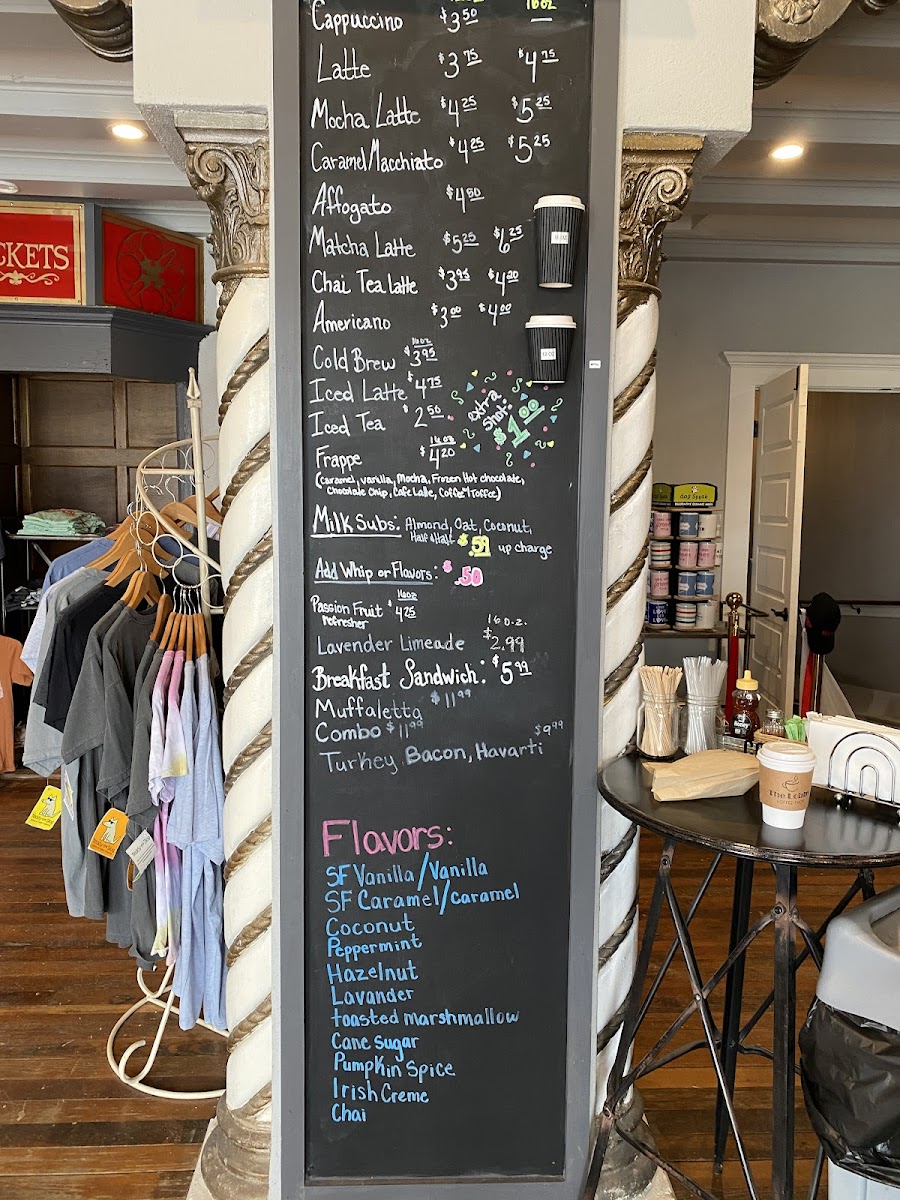 16oz
Cappuccino $3.50
Latte $3.75 $4.75
Mocha/Latte $4.25 $5.25
Caramel Macchiato $4.25 $5.25
Affogato $4.50
Matcha Latte $5.25 $6.25
Chai Tea Latte $3.95 $4.20
Americano $3.00 $4.00
16oz
Cold Brew $3.95
Iced Latte $4.75
Iced Tea $2.50
extra shot: $1.00
16oz
Frappe $4.20
(Caramel, vanilla, Mocha, Frozen Hot chocolate,
Chocolate Chip, Cafe Latte, Coffee Toffee)
Milk Subs: Almond, Oat, Coconut,
Half & Half $.59 up charge
Add Whip or Flavors: $.50
16oz
Passion Fruit refresher $4.25
16oz.
Lavender Limeade $2.99
Breakfast Sandwich: $5.99
Muffaletta $11.99
Combo $11.99
Turkey, Bacon, Havarti $9.99
Flavors:
SF Vanilla/Vanilla
SF Caramel/caramel
Coconut
Peppermint
Hazelnut
Lavander
toasted marshmallow
Cane sugar
Pumpkin Spice
Irish Creme
Chai
CKETS
Honey